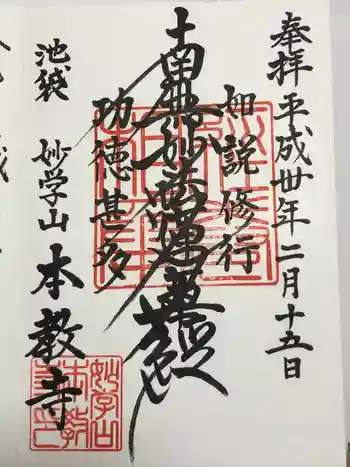 奉拝 平成卅年二月十五日
如説修行
南無妙法蓮華経
功徳甚多
池袋 妙学山 本教寺